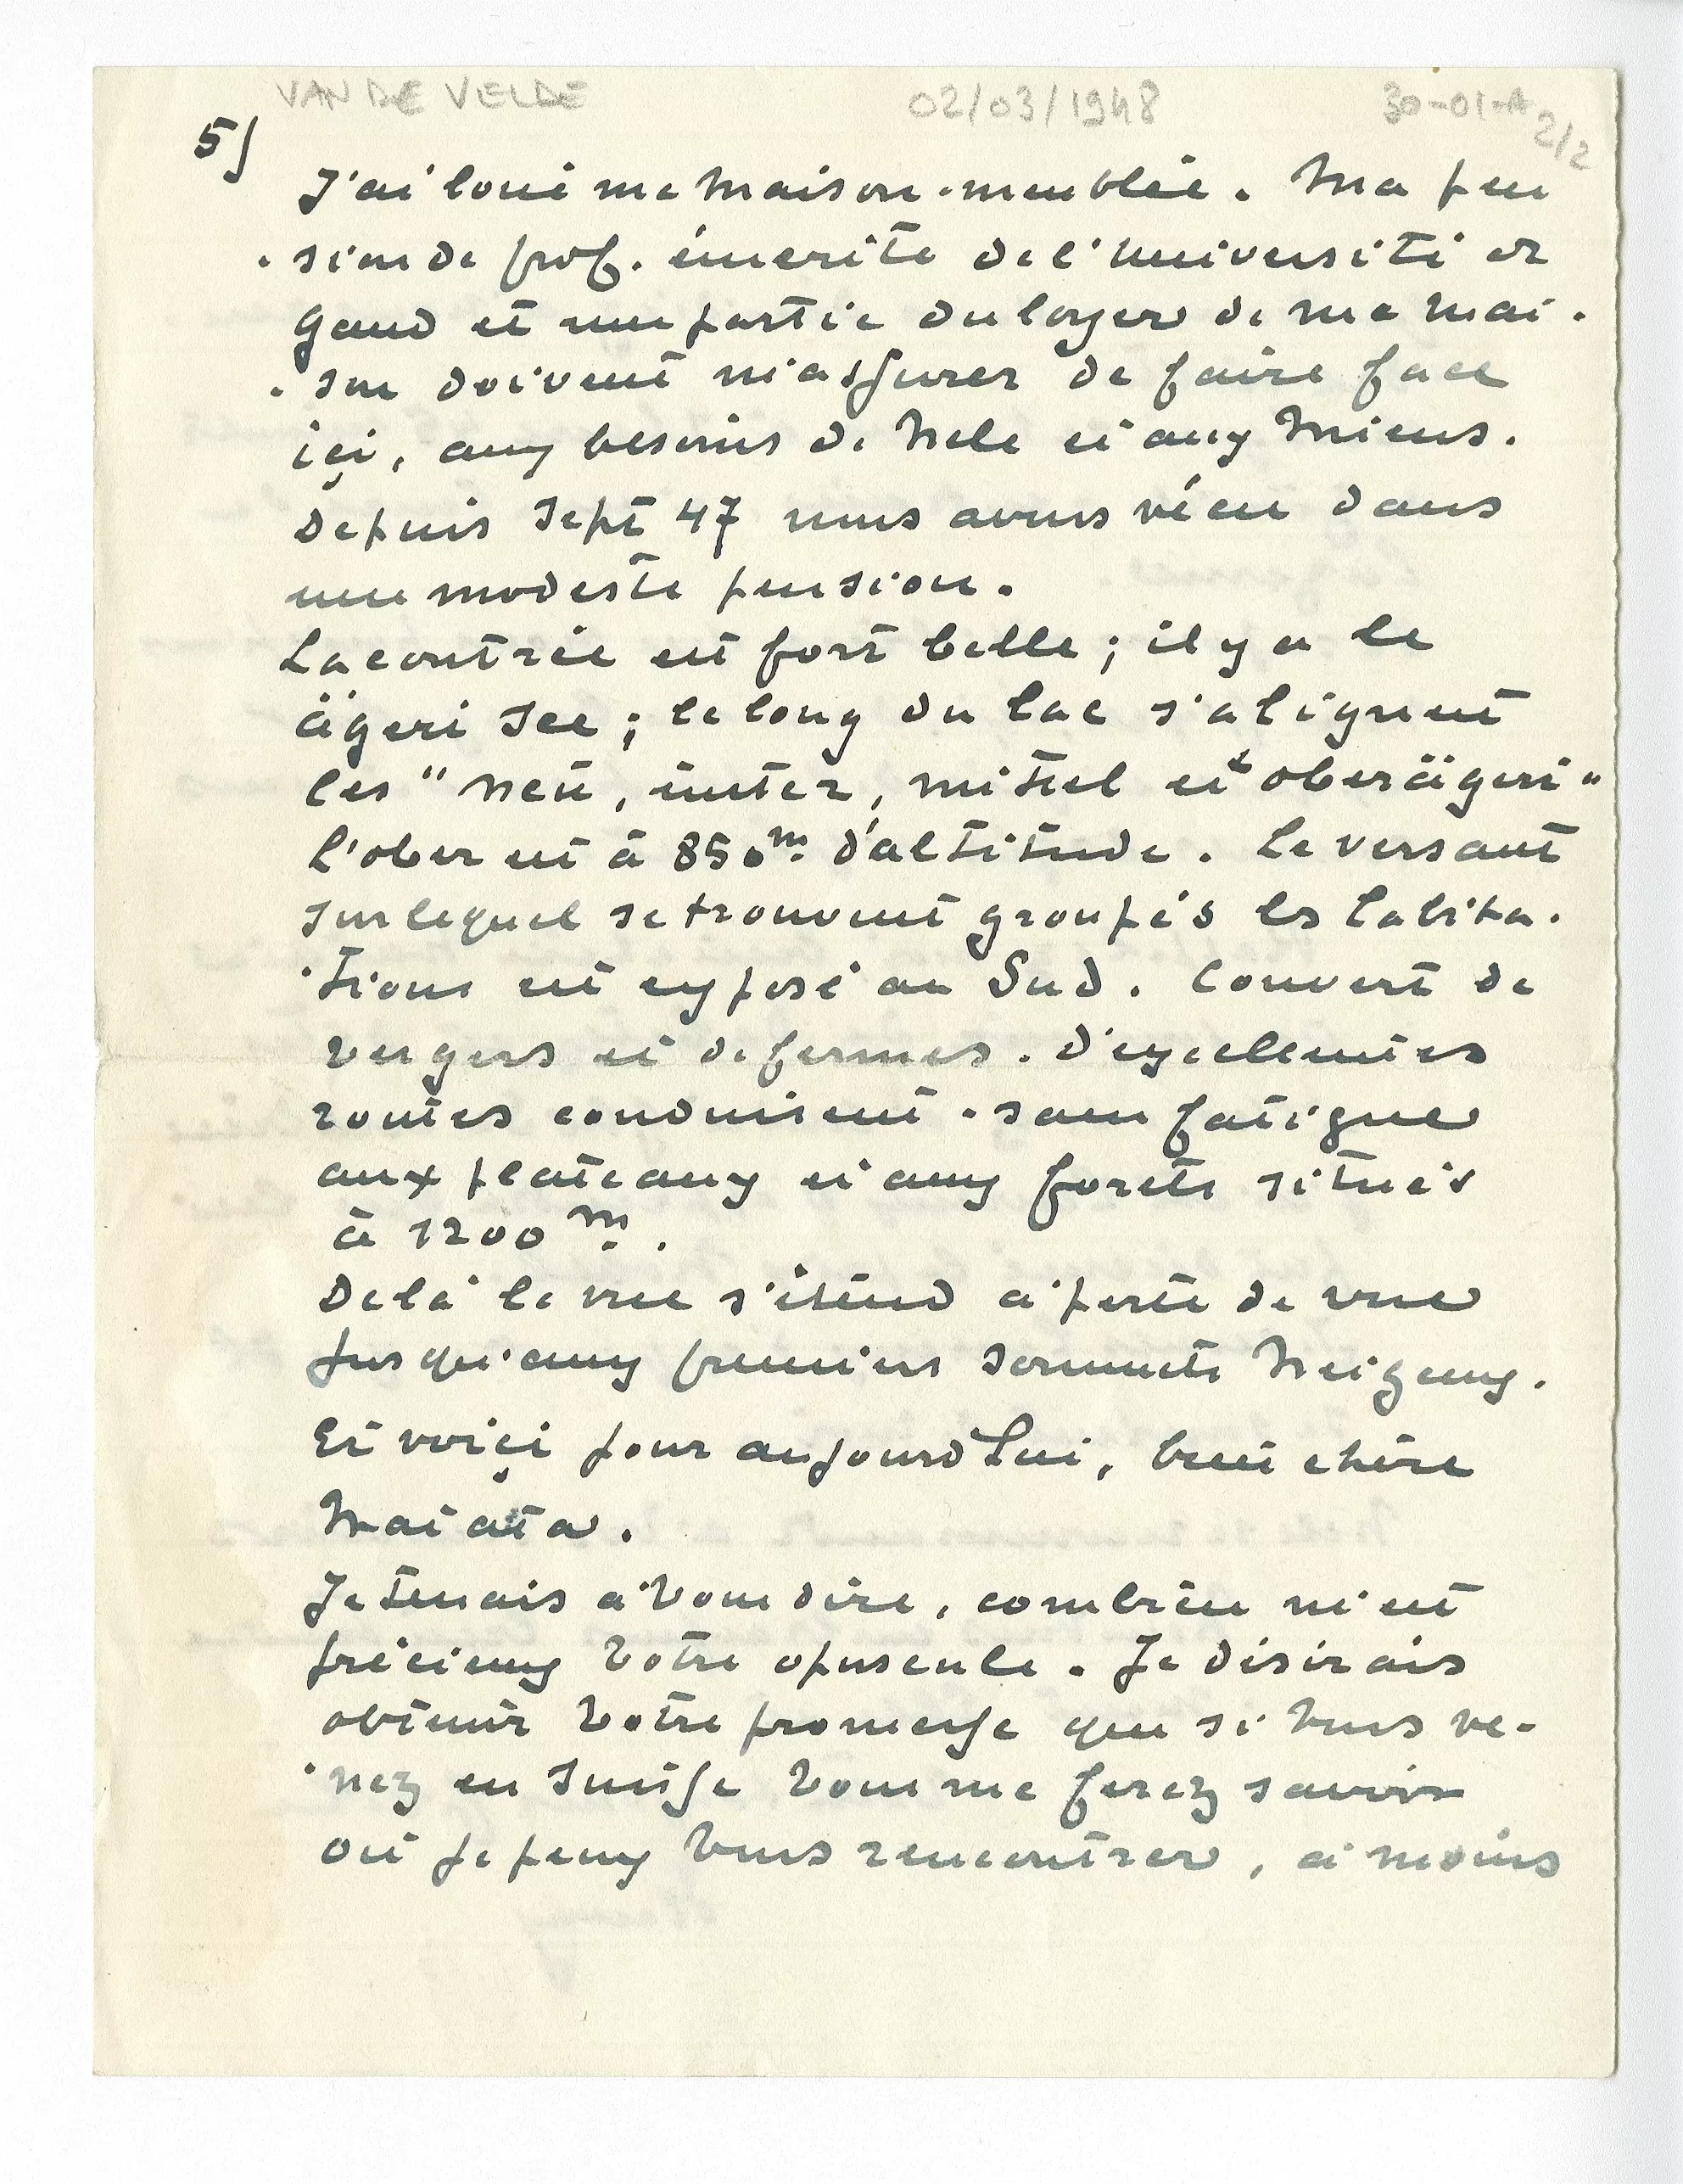 VAN DE VELDE 02/03/1948 30-01-A 2/2
5)
J'ai loué ma maison-meublée. Ma pen
-sion de prof. émerite de l'université de
Gand et une partie du loyer de ma mai-
-son doivent m'assurer de faire face
içi, aux besoins de Nele et aux miens.
Depuis Sept 47 nous avons vécu dans
une modeste pension.
La contrée est fort belle ; il y a le
ägeri See ; le long du lac s'alignent
les "neü, ünter, mittel et oberägeri"
l'ober est à 850 m. d'altitude. Le versant
sur lequel se trouvent groupés les habita-
-tions est exposé au Sud. Couvert de
vergers et de fermes. D'excellentes
routes conduisent - sans fatigue
aux plateaux et aux forets situés
à 1200 m.
De là la vue s'étend à perte de vue
jusqu'aux premiers sommets neigeux.
Et voiçi pour aujourd'hui, chère
Je tenais à vous dire, combien m'est
précieux votre opuscule. Je désirais
obtenir votre promesse que si vous ve-
-nez en Suisse vous me ferez savoir
où je peux vous rencontrer, à moins